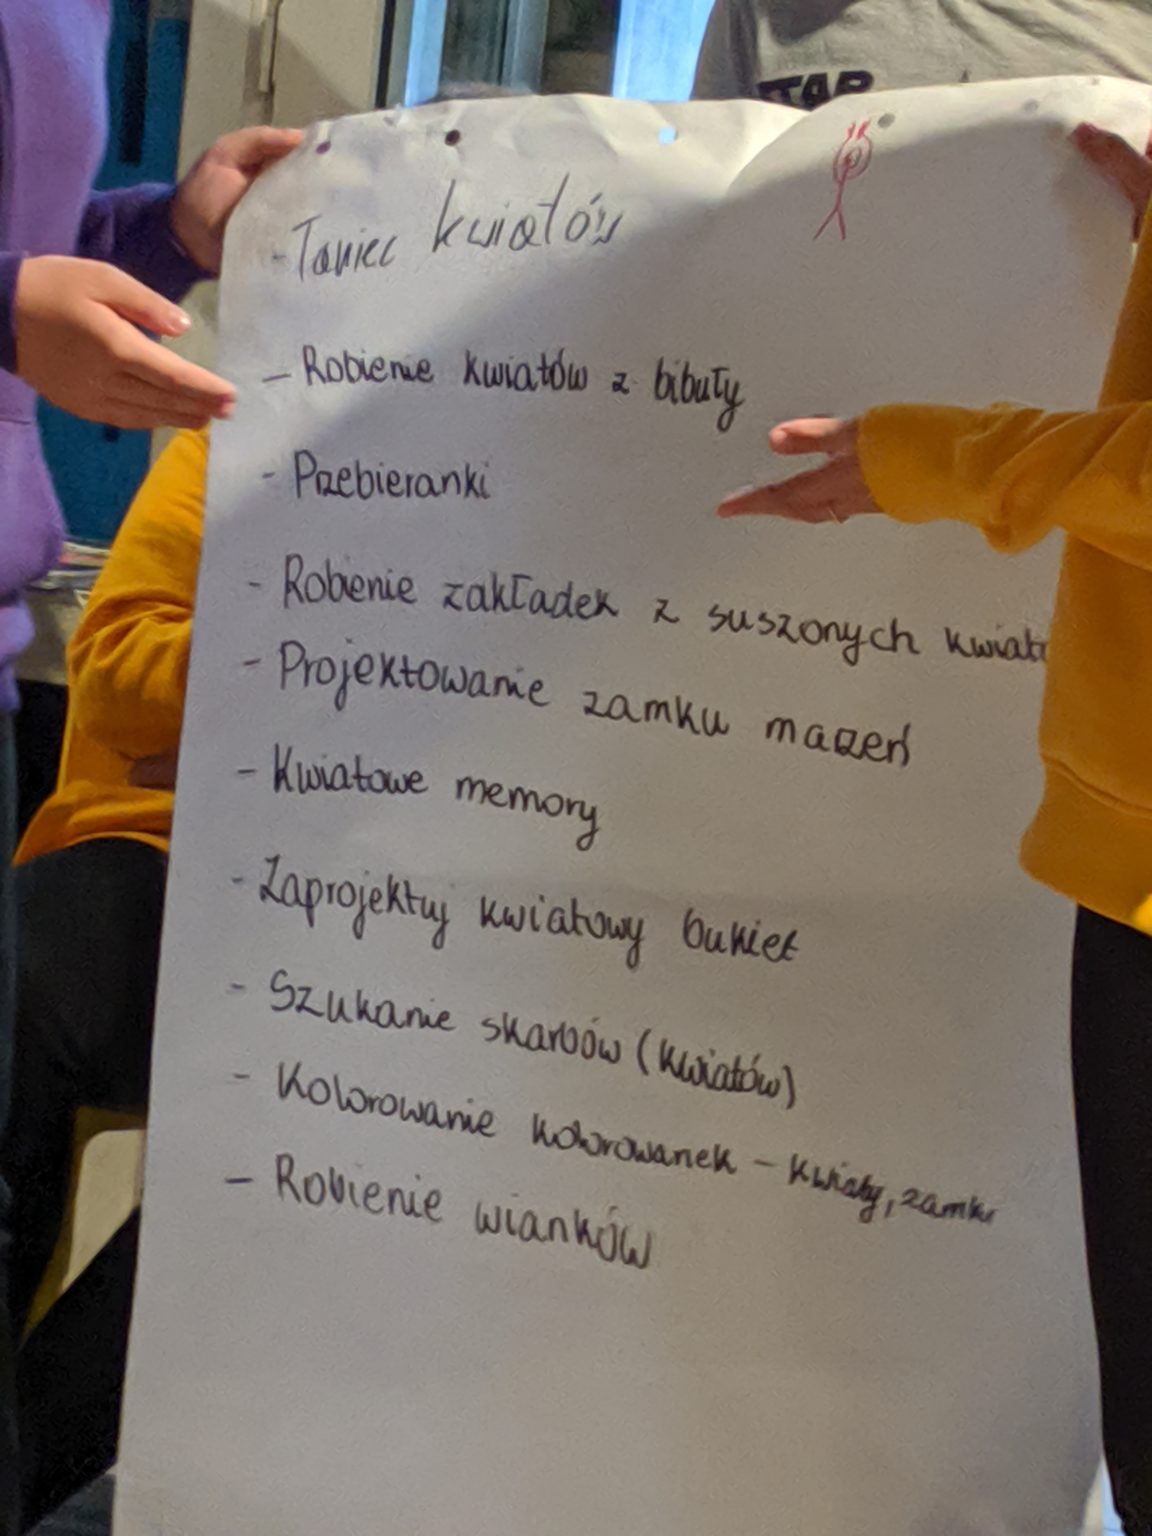 - Taniec kwiatów
- Robienie kwiatów z bibuły
- Przebieranki
- Robienie zakładek z suszonych
- Projektowanie zamku marzeń
- Kwiatowe memory
- Zaprojektuj kwiatowy bukiet
- Szukanie skarbów (kwiatów)
- Kolorowanie kolorowanek - kwiaty, zamku
- Robienie wianków